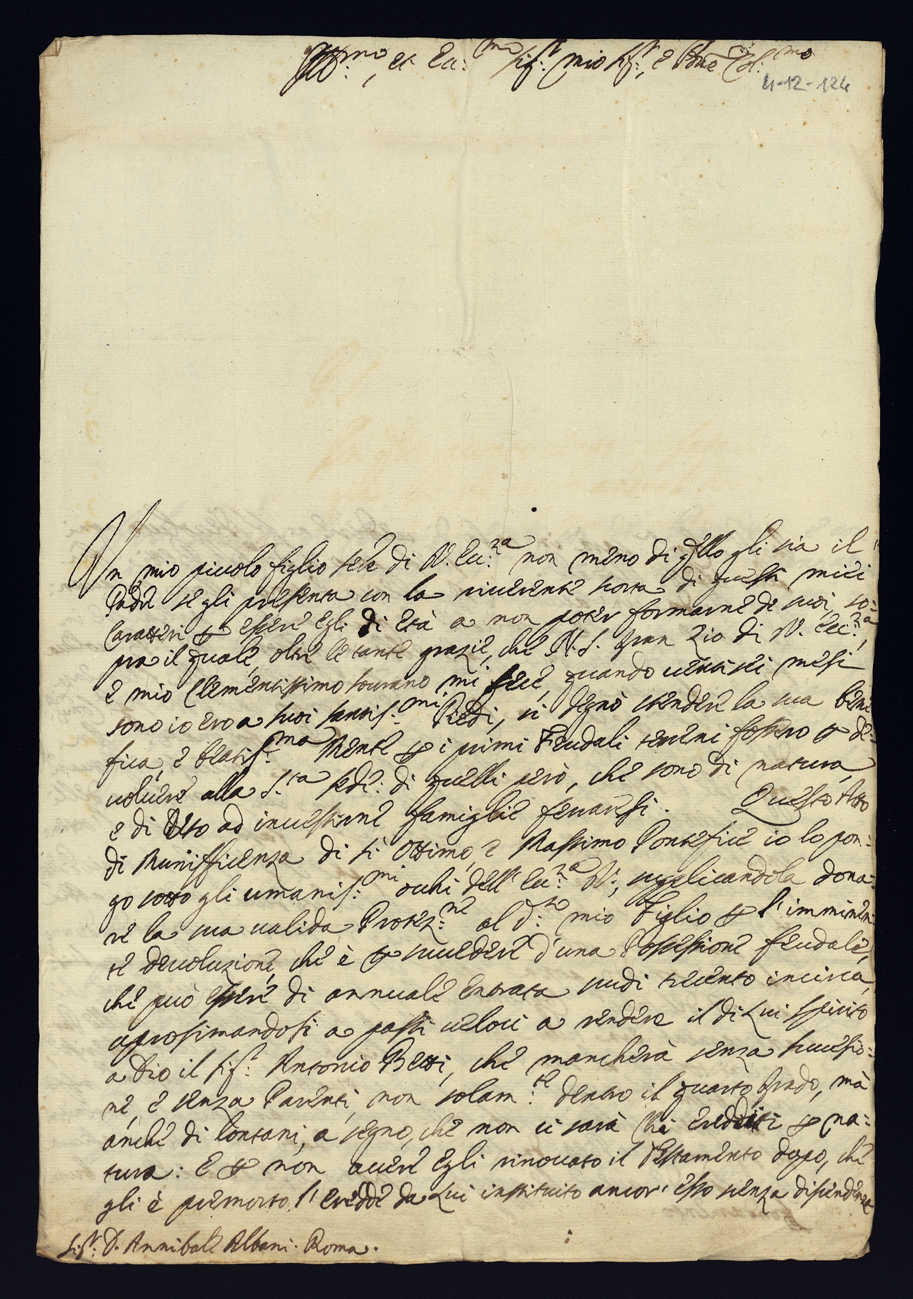 Ill.mo, et Ecc.mo Sig.r mio Sig.r, e Pne Col.mo
4-12-124
Un mio piccolo figlio ser.e di V. Ecc.za non meno di q.llo gli sia il
Padre se gli presenta con la riverente scorta di questi miei
Caratteri per essere egli di età a non poter formarne de suoi, so=
pra il quale, oltre le tante grazie, che N. S. gran Zio di V. Ecc.za,
e mio Clementissimo sourano mi fece, quando uentisei mesi
sono io ero a suoi santis.mi Piedi, si degnò stendere la sua bene
fica, e beatis.ma Mente per i primi Feudali terreni fossero per de=
uoluere alla S.ta Sede: di quelli però, che sono di natura,
e di Uso ad inuestirne famiglie ferraresi. Questo Atto
di Munificenza di sì Ottimo e Massimo Pontefice io lo pon=
go sotto gli umanis.mi occhi dell'Ecc.za V., supplicandola dona=
re la sua valida Protez.ne al d.o mio Figlio per l'imminen=
te deuoluzione, che è per succedere d'una Possessione feudale,
che può essere di annuale entrata scudi trecento incirca,
aprosimandosi a passi ueloci a rendere il di Lui spirito
a Dio il Sig.r Antonio Betti, che mancherà senza successio=
ne, e senza Parenti, non solam.te dentro il quarto Grado, mà
anche di lontani, a segno, che non ci sarà chi erediti per na=
tura: E per non auere egli rinouato il Testamento dopo, che
gli è premorto l'erede da Lui instituito ancor' esso senza discendenze
Sig.r D. Annibale Albani. Roma.